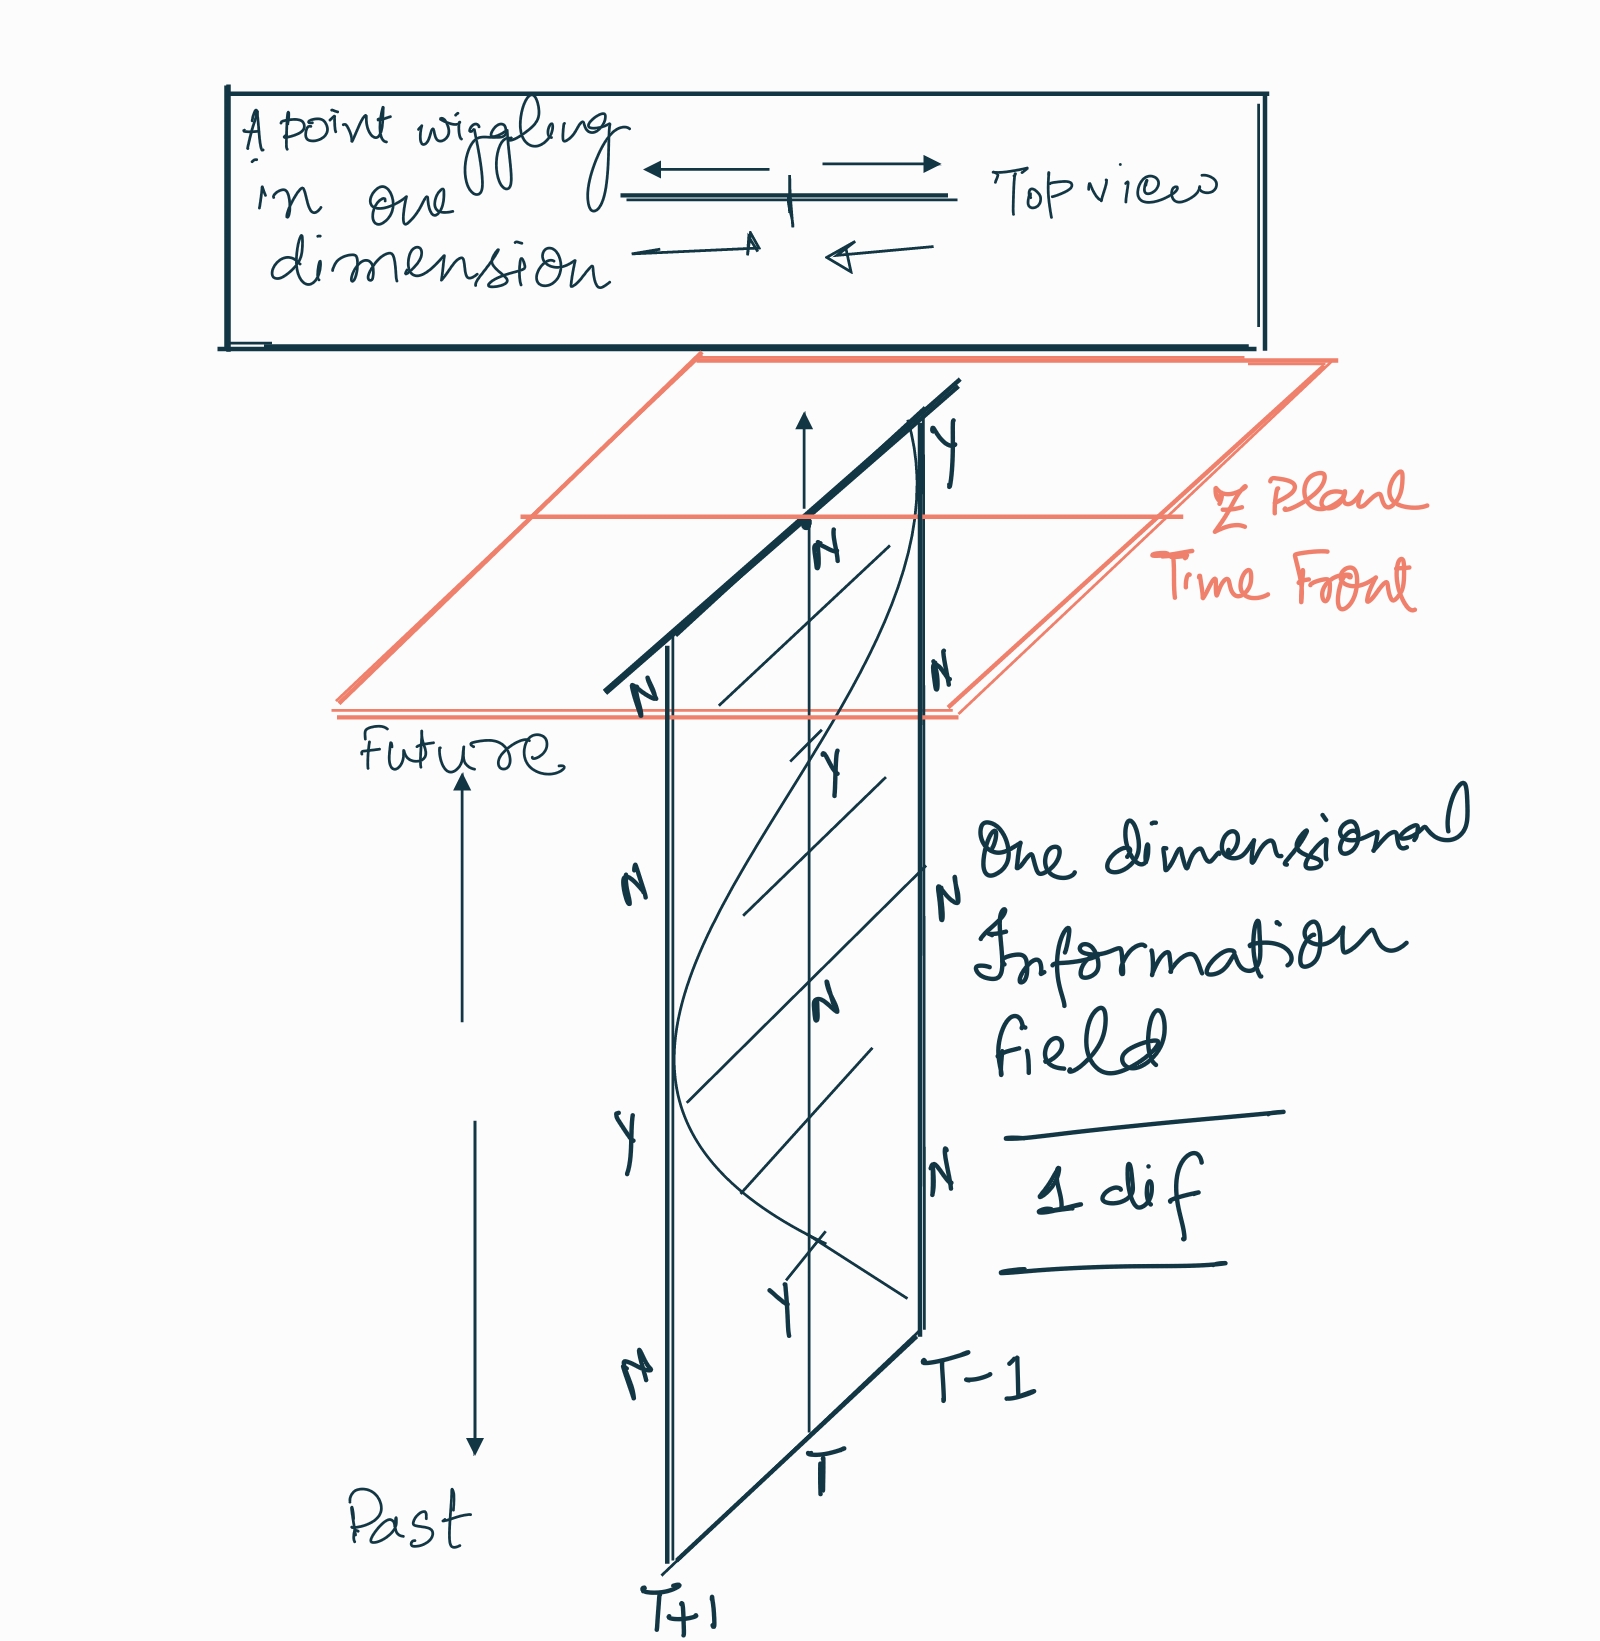 A point wiggling
in one
dimension
Top view
Y
Z Plane
Time Front
N
N
N
Future
Y
N
N
One dimensional
Information
field
N
Y
N
1 dif
Y
N
T-1
T
Past
T+1